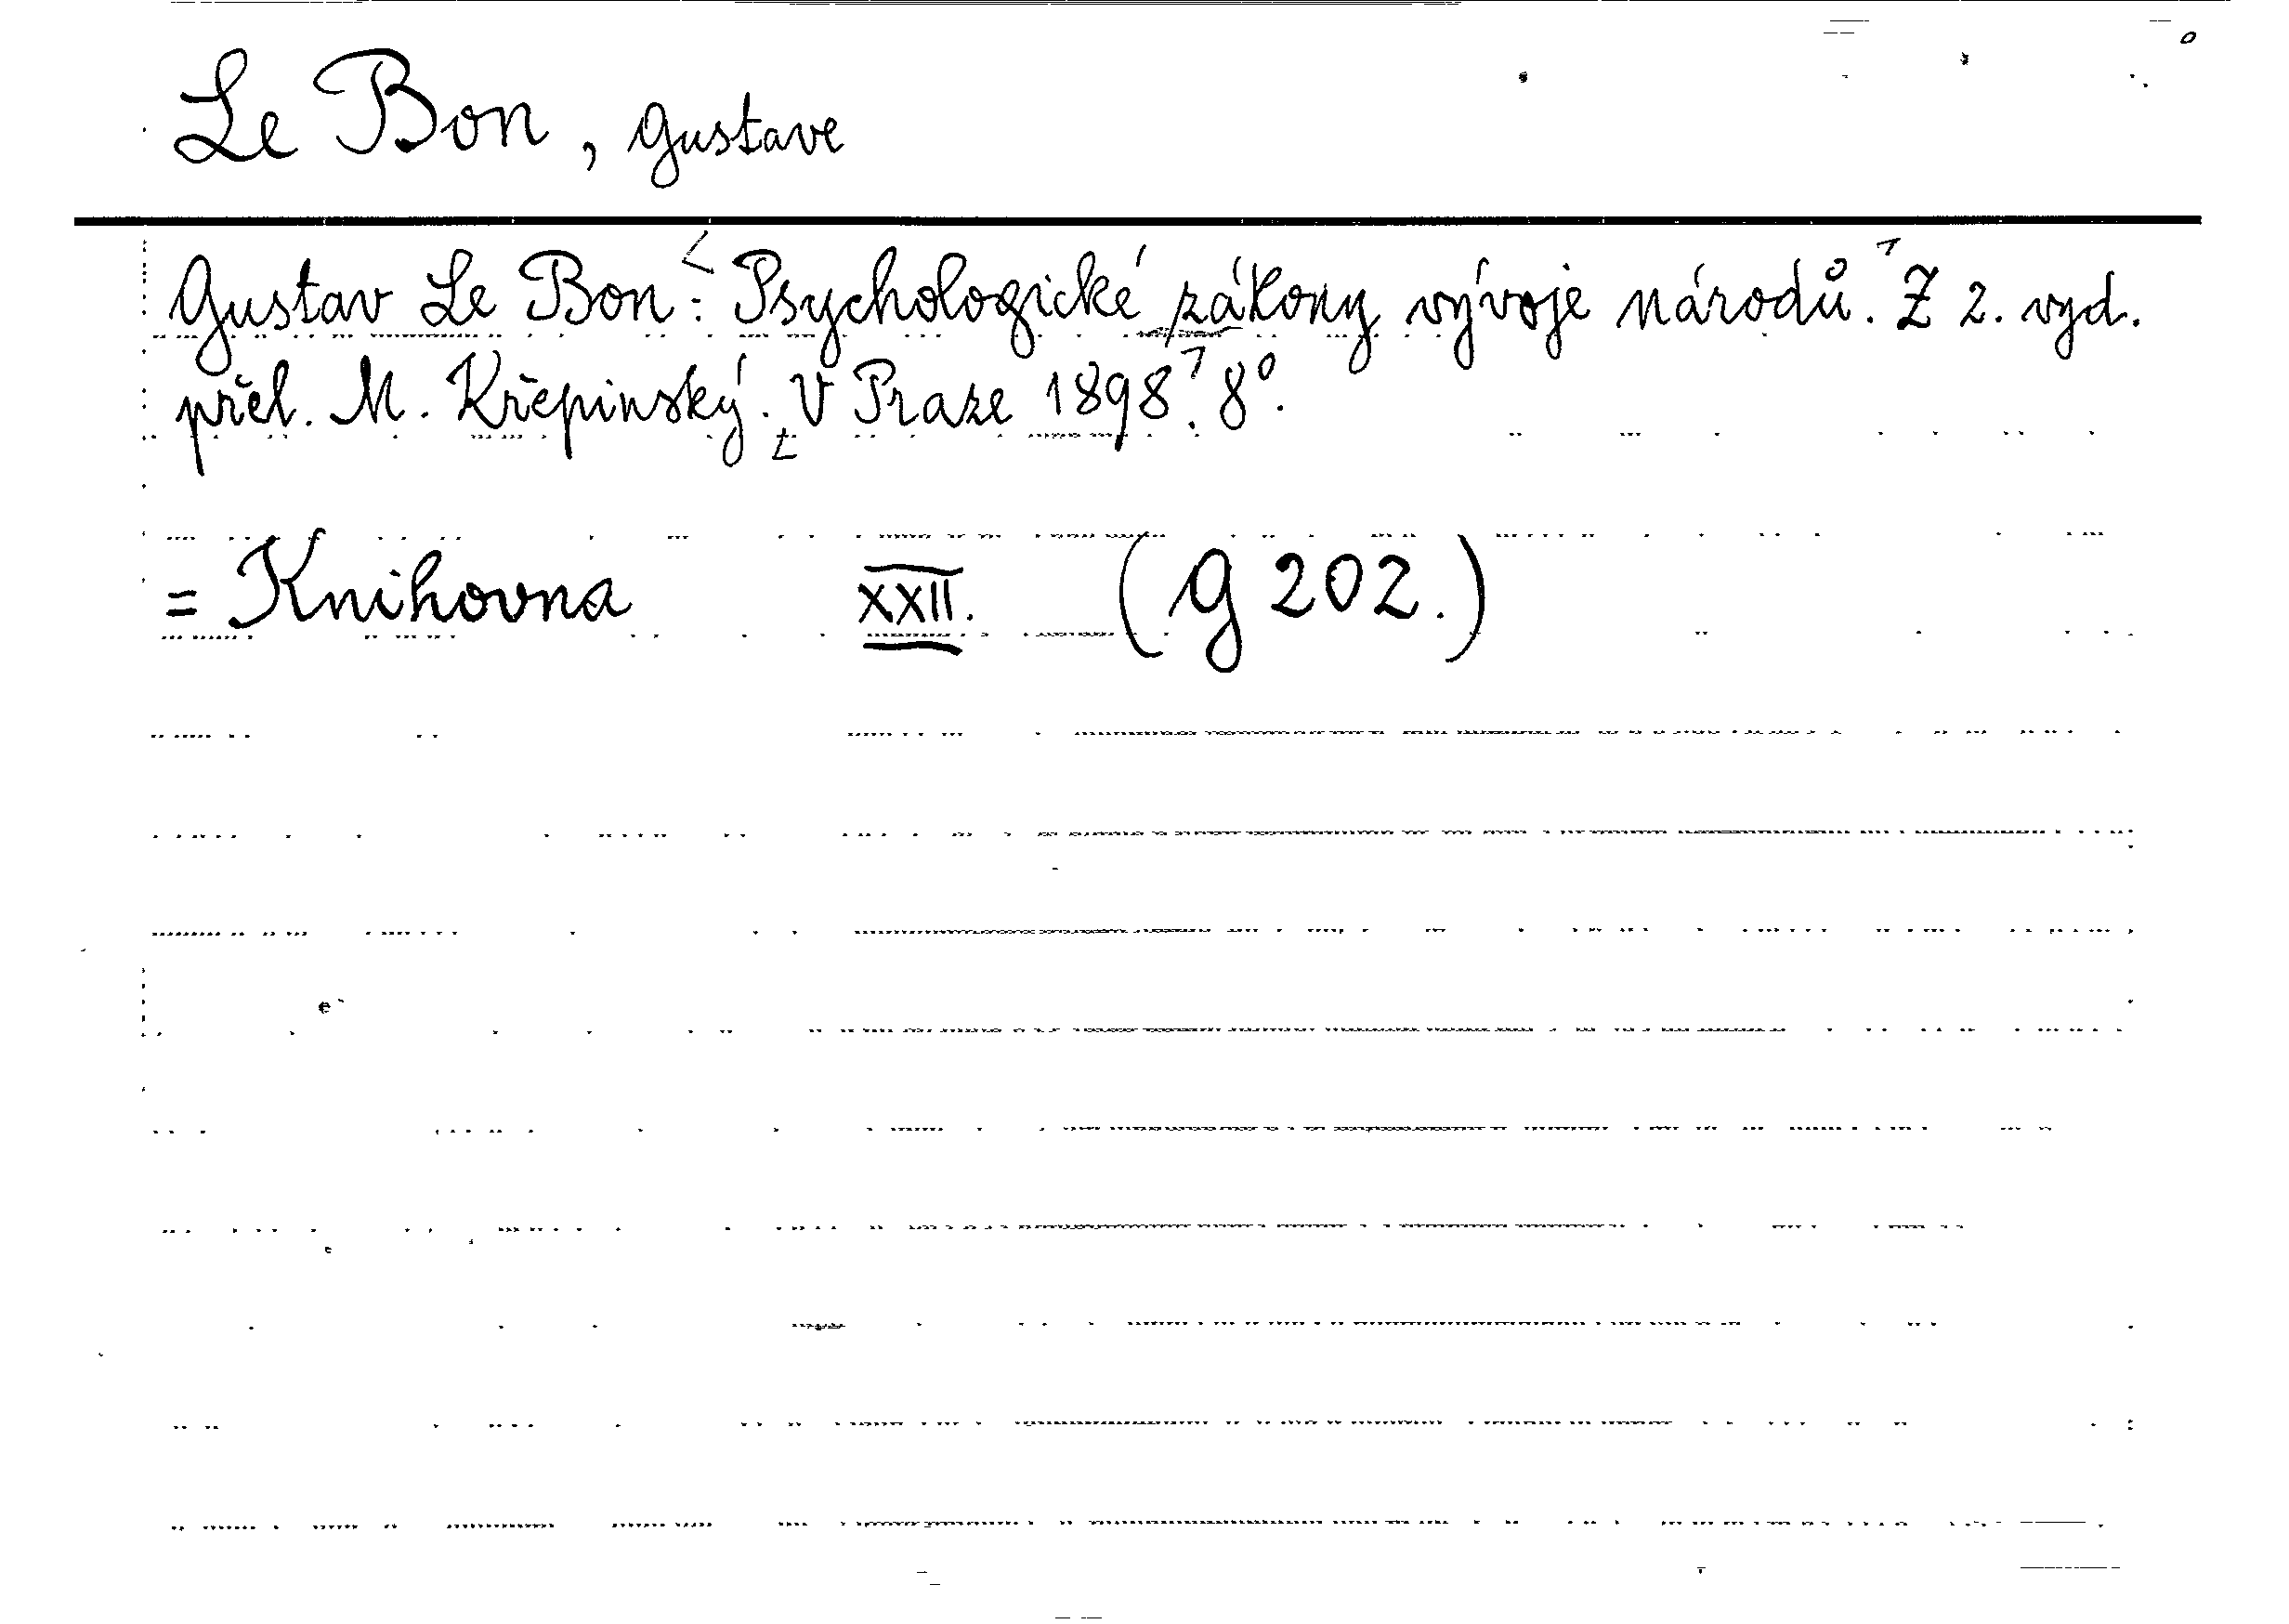 Le Bon, Gustave
Gustav Le Bon: Psychologické zákony vývoje národů. Z 2. vyd.
přel. M. Křepinský. V Praze 1898. 8°.
= Knihovna XXII. (G 202.)